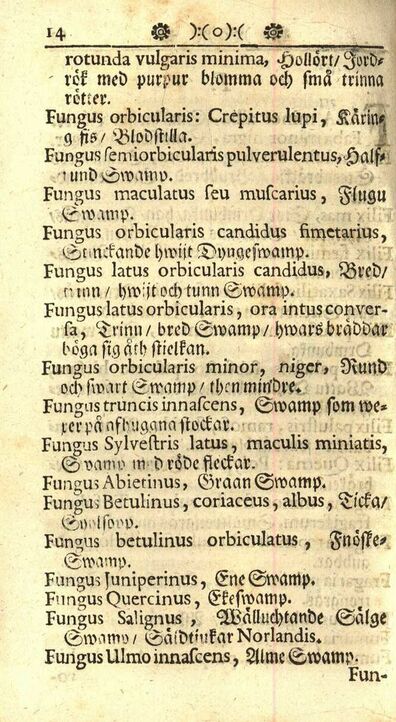 14 ):(o):(
rotunda vulgaris minima, Hollört/ Jord-
rök med purpur blomma och små trinna
rötter.
Fungus orbicularis: Crepitus lupi, Käring
fis/ Blodstilla.
Fungus semiorbicularis pulverulentus, Half-
rund Swamp.
Fungus maculatus seu muscarius, Flugu
Swamp.
Fungus orbicularis candidus fimetarius,
Stinckande hwijt Dyngeswamp.
Fungus latus orbicularis candidus, Bred/
trinn/ hwijt och tunn Swamp.
Fungus latus orbicularis, ora intus conver-
sa, Trinn/ bred Swamp/ hwars bräddar
böga sig åth stielkan.
Fungus orbicularis minor, niger, Rund
och swart Swamp/ then mindre.
Fungus truncis innascens, Swamp som we-
xer på afhugana stockar.
Fungus Sylvestris latus, maculis miniatis,
Swamp med röde fleckar.
Fungus Abietinus, Graan Swamp.
Fungus Betulinus, coriaceus, albus, Ticka/
Fungus betulinus orbiculatus, Fnöske-
Swamp.
Fungus Juniperinus, Ene Swamp.
Fungus Quercinus, Ekeswamp.
Fungus Salignus, Wälluchtande Sälge
Swamp/ Norlandis.
Fungus Ulmo innascens, Alme Swamp.
Fun-